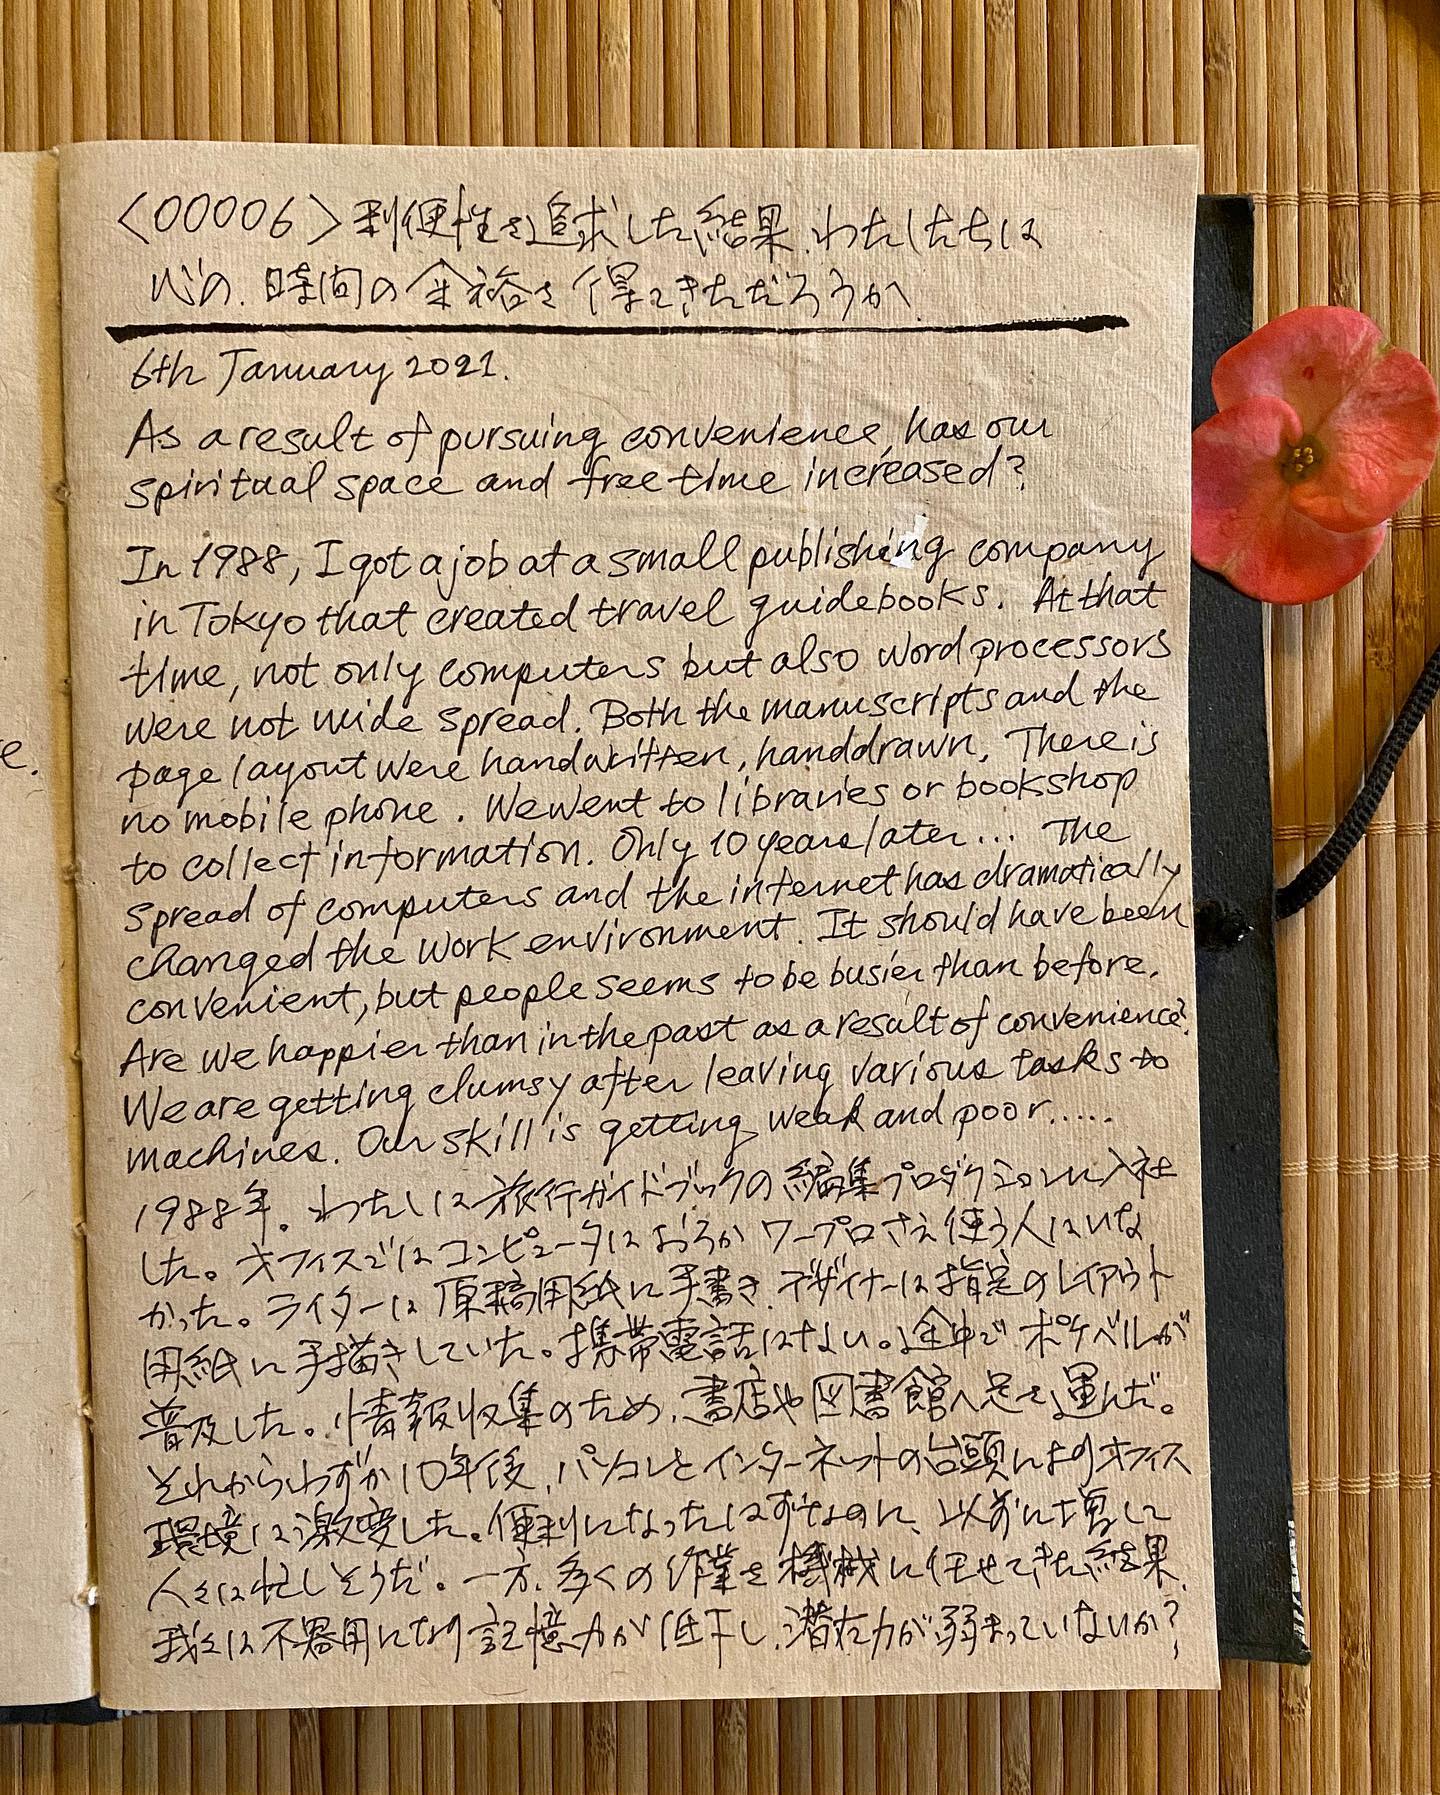 e.
<00006>利便性を追求した結果、わたしたちは
心の、時間の余裕を得てきただろうか
6th January 2021.
As a result of pursuing convenience, has our
spiritual space and free time increased?
In 1988, I got a job at a small publishing company
in Tokyo that created travel guidebooks. At that
time, not only computers but also word processors
were not wide spread. Both the manuscripts and the
page layout were handwritten, handdrawn. There is
no mobile phone. We went to libraries or bookshop
to collect information. Only 10 years later... The
spread of computers and the internet has dramatically
changed the work environment. It should have been
convenient, but people seems to be busier than before.
Are we happier than in the past as a result of convenience?
We are getting clumsy after leaving various tasks to
machines. Our skill is getting weak and poor.....
1988年。わたしは旅行ガイドブックの編集プロダクションに入社
した。オフィスではコンピュータはおろかワープロさえ使う人はいな
かった。ライターは原稿用紙に手書き、デザイナーは指定のレイアウト
用紙に手描きしていた。携帯電話はない。途中でポケベルが
普及した。情報収集のため、書店や図書館へ足を運んだ。
それからわずか10年後、パソコンとインターネットの台頭によりオフィス
環境は激変した。便利になったはずなのに、以前に増して
人々は忙しそうだ。一方、多くの作業を機械に任せてきた結果、
我々は不器用になり記憶力が低下し、潜在力が弱まっていないか?